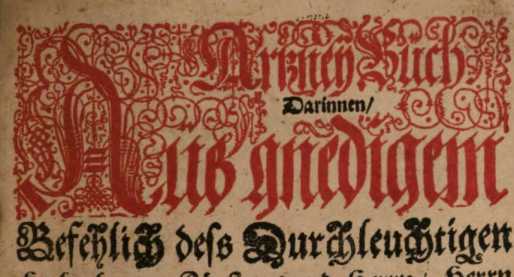 Artzney Buch
Darinnen/
Auß gnedigem
Befehlich deß Durchleuchtigen
Herrn